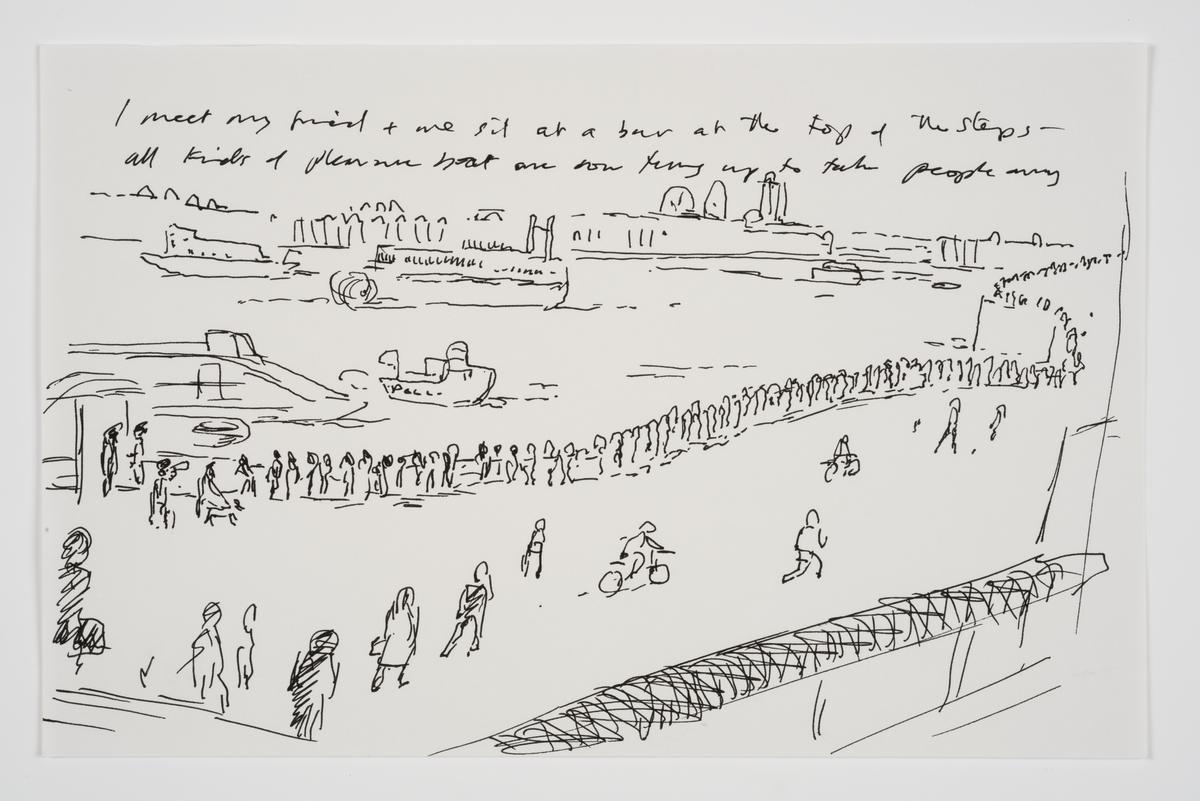 I meet my friend + we sit at a bar at the top of the steps —
all kinds of pleasure boat are now tying up to take people away